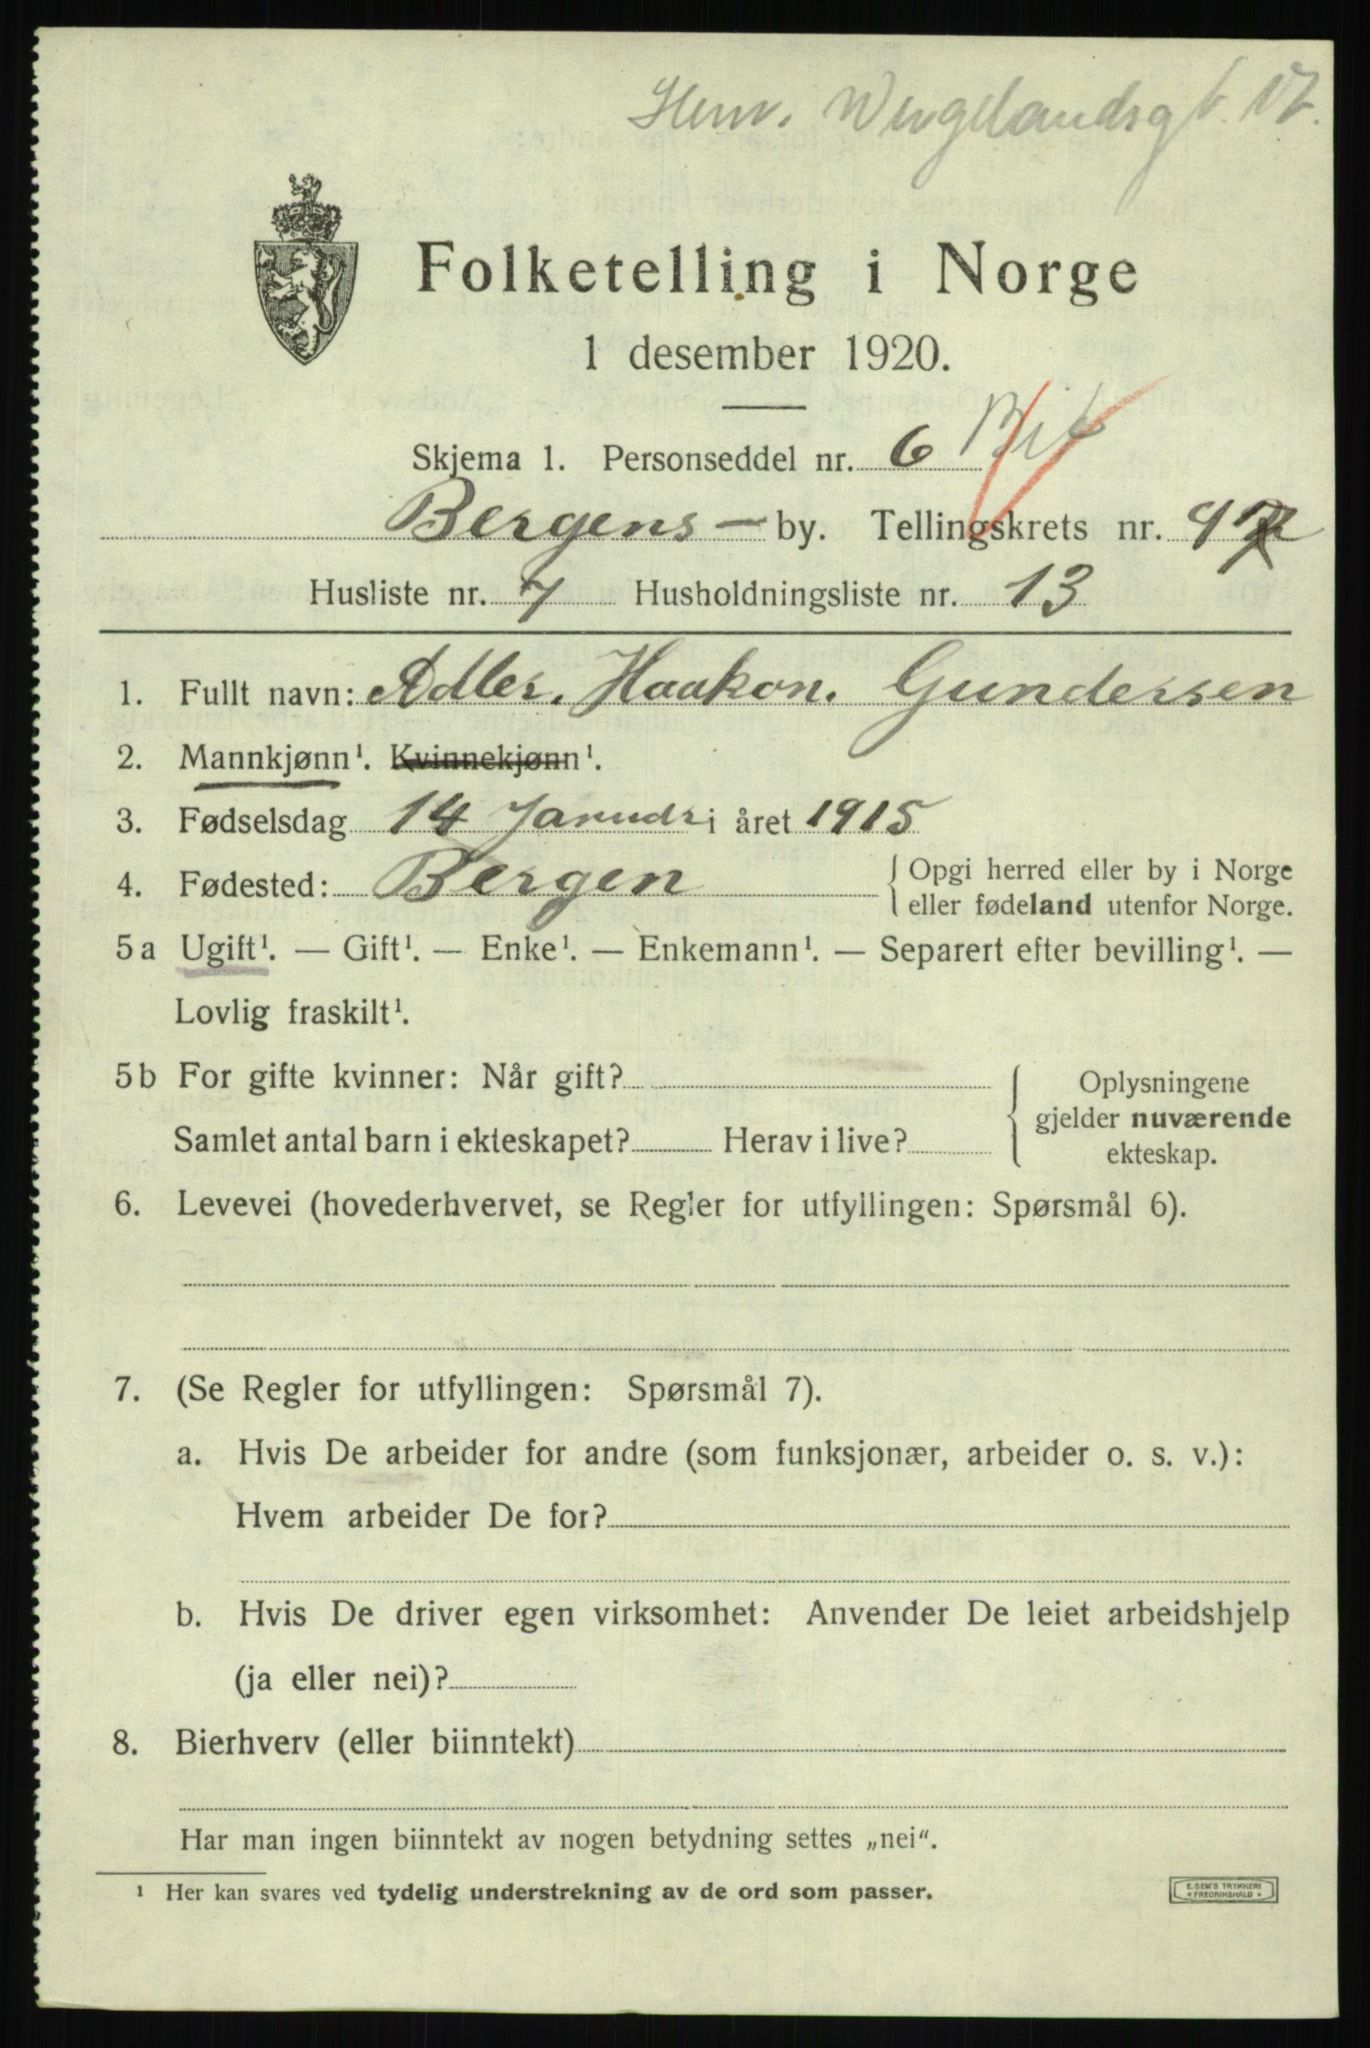 Henr. Wergelandsgt. 17.
Folketelling i Norge
1 desember 1920.
Skjema 1. Personseddel nr. 6
Bergens - by. Tellingskrets nr. 42
Husliste nr. 7 Husholdningsliste nr. 13
1. Fullt navn: Adler. Haakon. Gundersen
2. Mannkjønn¹. Kvinnekjønn¹.
3. Fødselsdag 14 Januar i året 1915
4. Fødested: Bergen { Opgi herred eller by i Norge
eller fødeland utenfor Norge.
5a Ugift¹. — Gift¹. — Enke¹. — Enkemann¹. — Separert efter bevilling¹. —
Lovlig fraskilt¹.
5b For gifte kvinner: Når gift? { Oplysningene
gjelder nuværende
Samlet antal barn i ekteskapet? Herav i live?
ekteskap.
6. Levevei (hovederhvervet, se Regler for utfyllingen: Spørsmål 6).
7. (Se Regler for utfyllingen: Spørsmål 7).
a. Hvis De arbeider for andre (som funksjonær, arbeider o. s. v.):
Hvem arbeider De for?
b. Hvis De driver egen virksomhet: Anvender De leiet arbeidshjelp
(ja eller nei)?
8. Bierhverv (eller biinntekt)
Har man ingen biinntekt av nogen betydning settes „nei“.
¹ Her kan svares ved tydelig understrekning av de ord som passer.
E. SEM'S TRYKKERI
* FREDRIKSHALD *